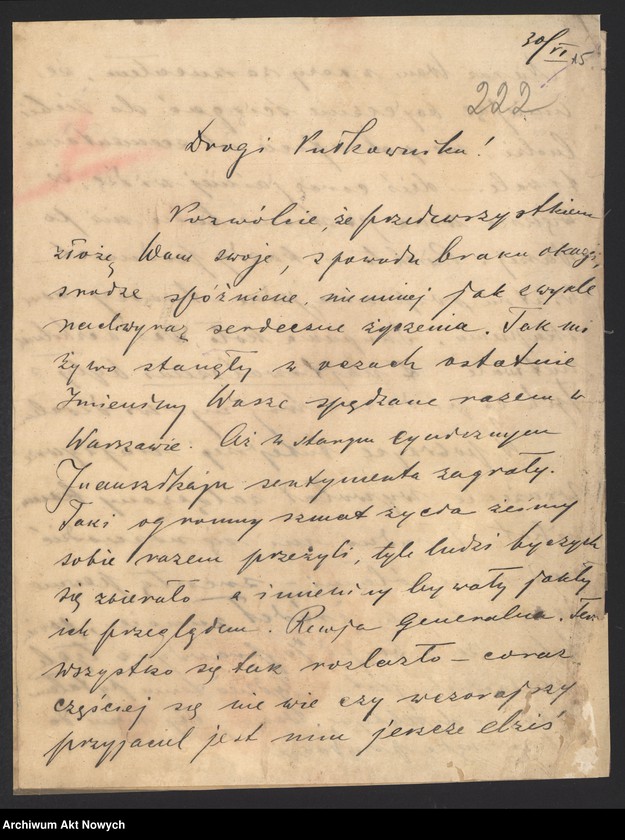 30/VI 15
222
Drogi Pułkowniku!
Pozwólcie, że przedewszystkiem
złożę Wam swoje, z powodu braku okazji,
srodze spóźnione, niemniej jak zwykle
nadwyraz serdeczne życzenia. Tak mi
żywo stanęły w oczach ostatnie
Imieniny Wasze spędzane razem w
Warszawie. Aż w starym cynicznym
sentymenta zagrały.
Taki ogromny szmat życia żeśmy
sobie razem przeżyli, tyle ludzi byczych
się zbierało a imieniny bywały jakby
ich przeglądem. Rewja Generalna. Ter.
wszystko się tak rozlazło – coraz
częściej się nie wie czy wczorajszy
przyjaciel jest nim jeszcze dziś
Archiwum Akt Nowych